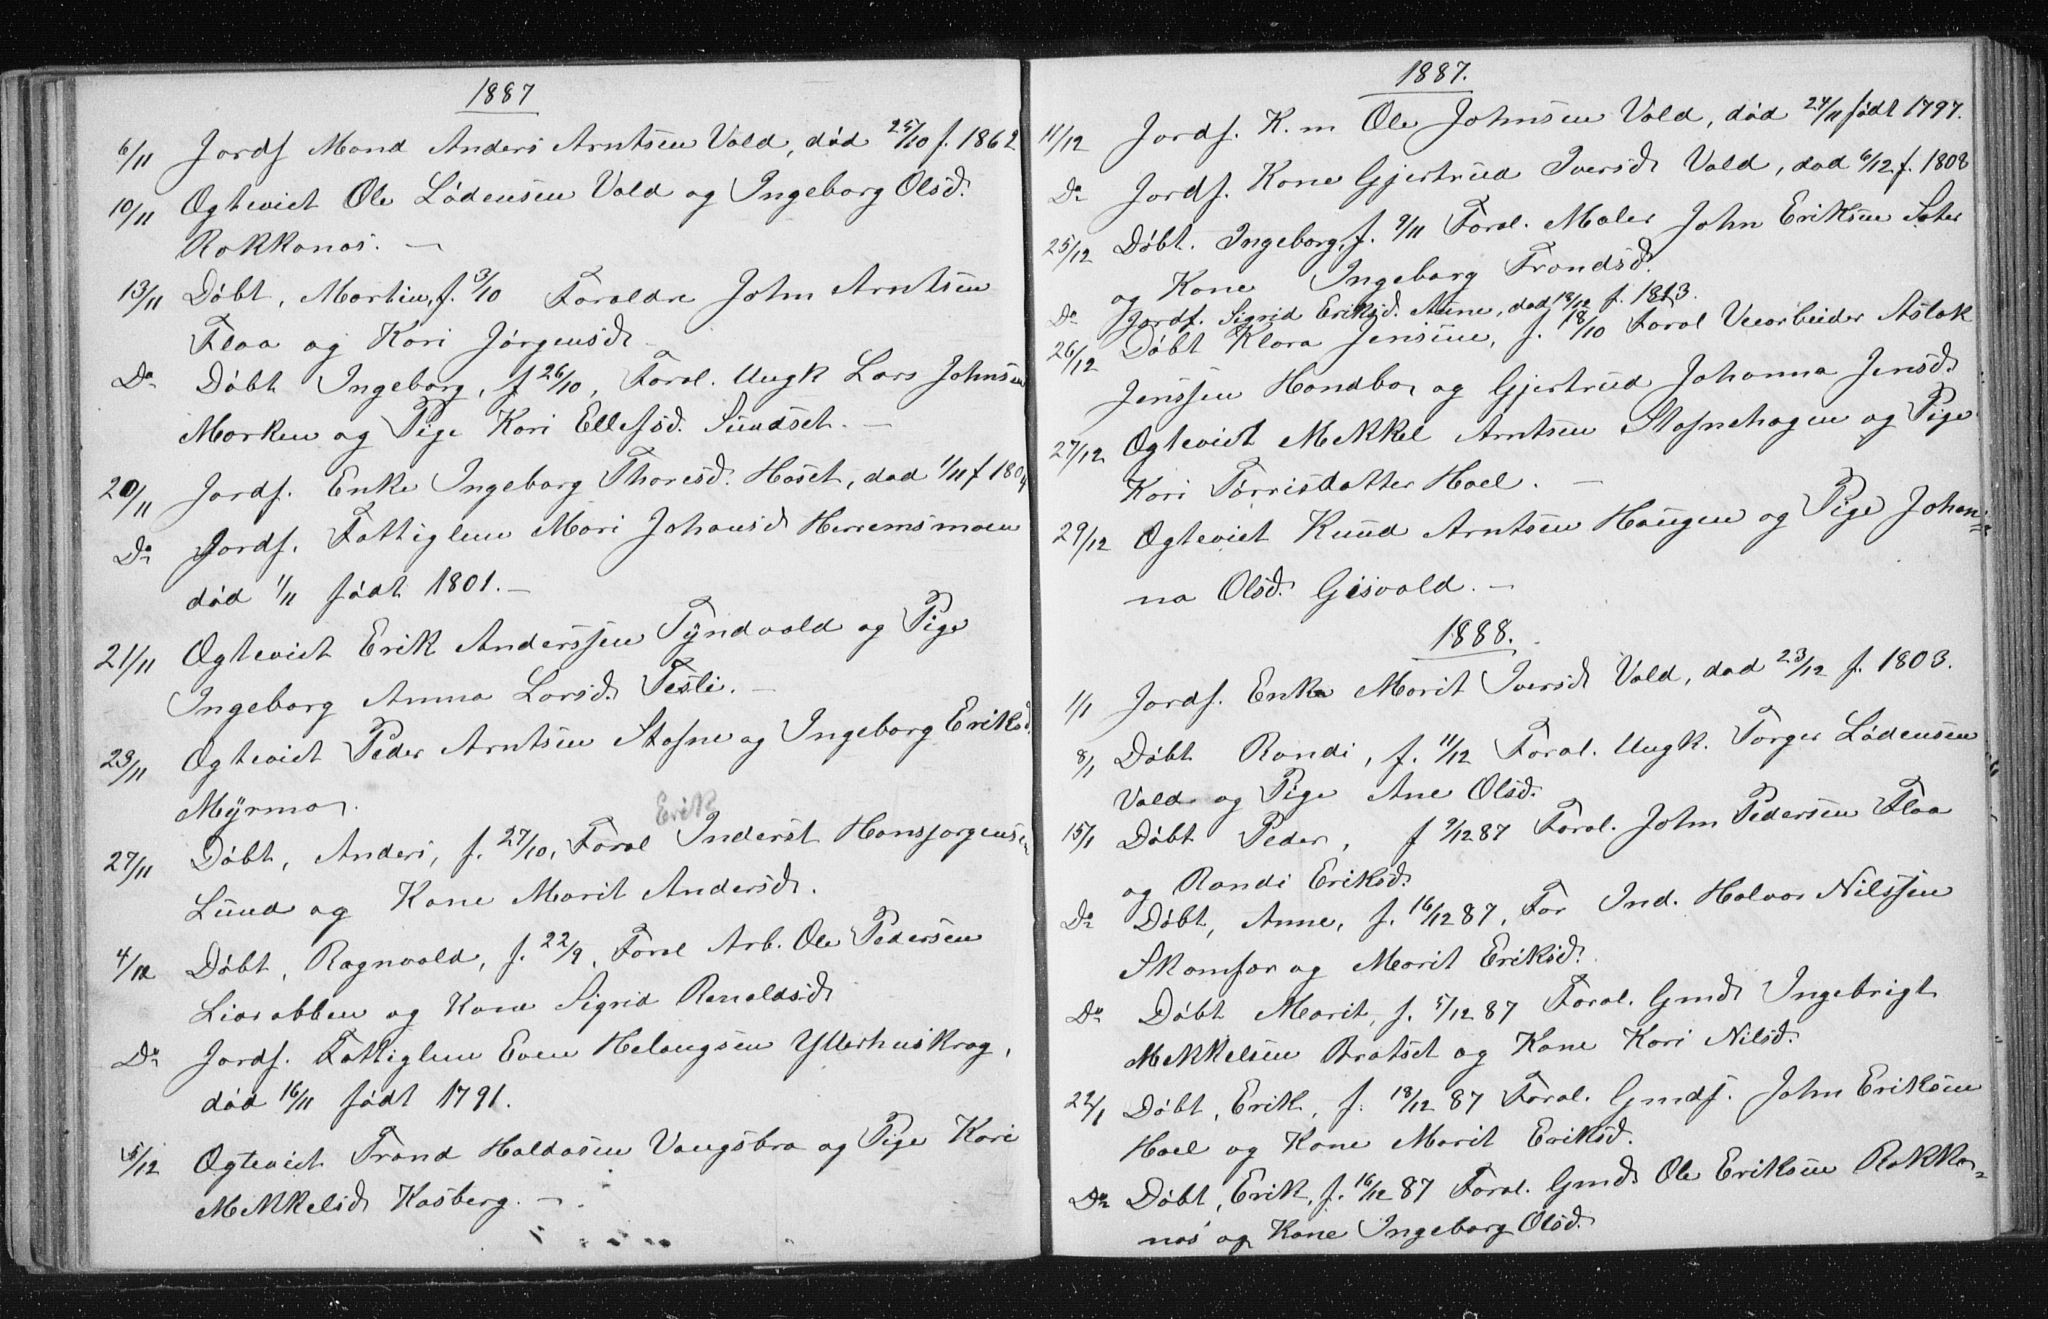 1887
6/11 Jordf Mand Anders Arntsen Vold, død 25/10 f. 1862
10/11 Ogteviet Ole Lødensen Vold og Ingeborg Olsd.
Rokkonas. —
13/11 Døbt, Martin, f. 3/10 Foraldre John Arntsen
Floa og Kari Jørgensd
Do Døbt Ingeborg, f 26/10, Foral. Ungk Lars Johnsen
Morken og Pige Kari Ellefsd. Sundset. —
20/11 Jordf. Enke Ingeborg Thoresd. Haset, død 1/11 f 180
Do Jordf. Fattiglem Mari Johansd Herremsmoen
død 1/11 født 1801. —
21/11 Ogteviet Erik Anderssen Tyndvold og Pige
Ingeborg Anna Larsd. Tesli. —
23/11 Ogteviet Peder Arntsen Stafne og Ingeborg Eriksd.
Myrmo.
Erik
27/11 Døbt, Anders, f. 27/10, Foral Inderst Hansjørgens=
Lund og Kone Marit Andersd.
4/12 Døbt, Ragnvald, f. 22/9, Foral Arb. Ole Pedersen
Liarabben og Kone Sigrid Ranaldsd
Do Jordf. Fattiglem Even Helaugsen Ytterhuskrog,
død 16/11 født 1791.
5/12 Ogteviet Trond Haldosen Vangsbro og Pige Kari
Mekkelsd Kasberg. —
1887.
11/12 Jordf. K.m Ole Johnsen Vold, død 24/11 født 1797.
Do Jordf. Kone Gjertrud Iversd Vold, død 6/12 f. 1808
25/12 Døbt. Ingeborg, f. 9/11 Foral. Maler John Eriksen Sater
og Kone Ingeborg Trondsd.
Do Jordf. Sigrid Eriksd. Aune, død 18/12 f. 1813.
26/12 Døbt Klara Jensine, f. 18/10 Foral Veiarbeider Aslak
Jenssen Handbo, og Gjertrud Johanna Jensd.
27/12 Ogteviet Mekkel Arntsen Stafnehagen og Pige
Kari Torrisdatter Hoel. —
29/12 Ogteviet Knud Arntsen Haugen og Pige Johan=
na Olsd. Gisvold. —
1888.
1/1 Jordf. Enke Marit Iversd Vold, død 23/12 f. 1803.
8/1 Døbt Randi, f. 11/12 Foral. Ungk. Torger Lødensen
Vold og Pige Ane Olsd.
15/1 Døbt Peder, f 9/12 87 Foral. John Pedersen Floa
og Randi Eriksd.
Do Døbt, Anne, f. 16/12 87, For Ind. Halvor Nilssen
Skamfar og Marit Eriksd.
Do Døbt Marit, f. 5/12 87 Foral. Gmd Ingebrigt
Mekkelsen Bratset og Kone Kari Nilsd.
22/1 Døbt, Erik, f. 18/12 87 Foral. Gmdf. John Eriksen
Hoel og Kone Marit Eriksd.
Do Døbt, Erik, f. 16/12 87 Foral. Gmd Ole Eriksen Rokko=
nas og Kone Ingeborg Olsd.